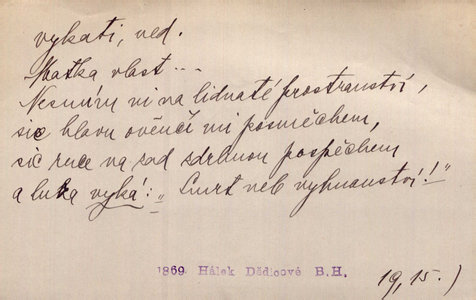 vykati, ved.
Matka vlast ...
Nesmím ni na lidnaté prostranství,
sic hlavu ověnčí mi posměchem,
sic ruce na sad sdrhnou pospěchem
a luka vyká: „Smrt neb vyhnanství!"
1869 Hálek Dědicové B.H.
19, 15.)